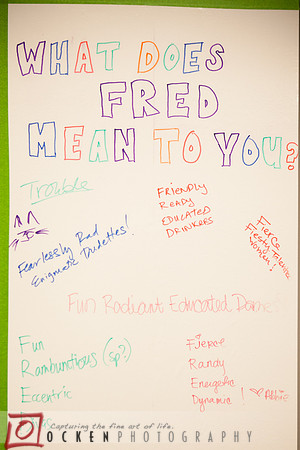 WHAT DOES
FRED
MEAN TO YOU?
Trouble
FRIENDLY
READY
EDUCATED
DRINKERS
Fearlessly Rad
Enigmatic Dudettes!
Fierce
Women!
Fun Radiant Educated Dame
Fun
Rambunctious (sp?)
Eccentric
Fierce
Randy
Energetic
Dynamic! ♡ Abbie
Capturing the fine art of life.
OCKEN PHOTOGRAPHY